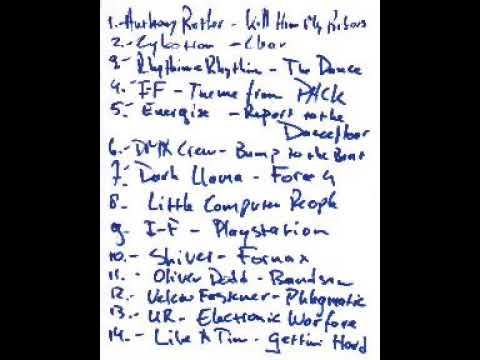 1.- Anthony Rother - Kill Him
2.- Cybotron - Clear
3. Rhythim Rhythim - The Dance
4. I-F - Theme from PACK
5. Energise - Report to the
Dancefloor
6.- DMX Crew - Bump to the Beat
7.- Dark Llama - Force 4
8.- Little Computer People
9. I-F - Playstation
10.- Shiver - Fornax
11. - Oliver Dodd - Bandsaw
12. - Velcro Fastener - Phlegmatic
13.- UR - Electronic Warfare
14.- Like A Tim - Gettin Hard